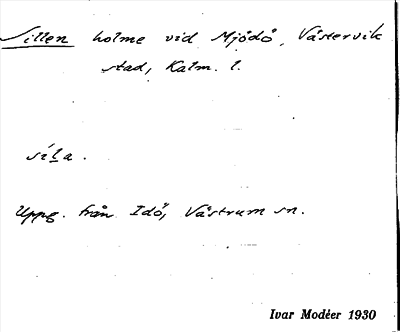 Sillen holme vid Mjödö, Västervik
stad, Kalm. l.
síla.
Uppg. från Idö, Västrum sn.
Ivar Modéer 1930